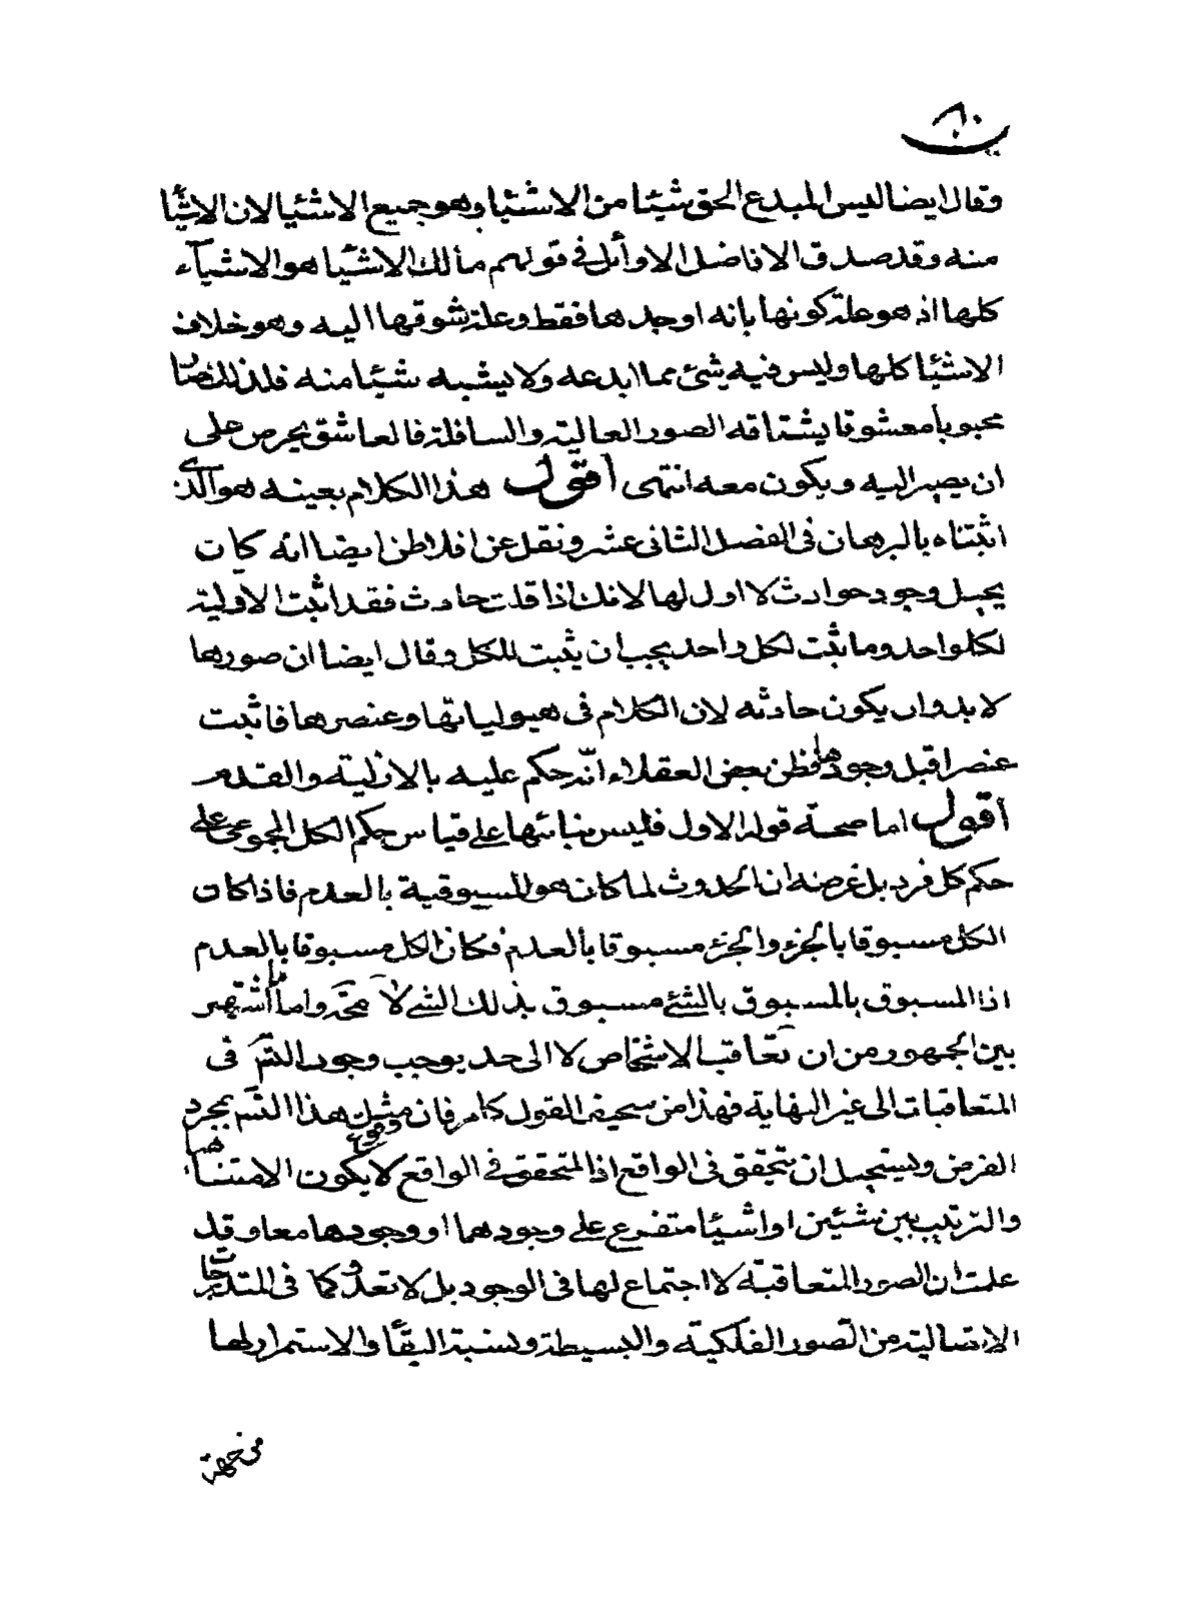 ٨٠
وقال ايضا ليس المبدع الحق شيئا من الاشيا وهو جميع الاشيا لان الاشيا
منه وقد صدق الافاضل الاوائل في قولهم مالك الاشيا هو الاشيآء
كلها اذ هو علة كونها بانه اوجدها فقط وعلة شوقها اليه وهو خلاف
الاشيا كلها وليس فيه شئ مما ابدعه ولا يشبه شيئا منه فلذلك صار
محبوبا معشوقا يشتاقه الصور العالية والسافلة فالعاشق يحرص على
ان يصير اليه ويكون معه انتهى اقول هذا الكلام بعينه هو الذى
اثبتناه بالبرهان فى الفصل الثانى عشر ونقل عن افلاطن ايضا انه كان
يحيل وجود حوادث لا اول لها لانك اذا قلت حادث فقد اثبت الاولية
لكل واحد وما ثبت لكل واحد يجب ان يثبت للكل وقال ايضا ان صورها
لا بد وان يكون حادثه لان الكلام فى هيولياتها وعنصرها فاثبت
عنصرا قبل وجودها فظن بعض العقلاء انه حكم عليه بالازلية والقدم
اقول اما صحة قوله الاول فليس بنائها على قياس حكم الكل المجموعى على
حكم كل فرد بل غرضه ان الحدوث لما كان هو المسبوقية بالعدم فاذا كان
الكل مسبوقا بالجزء والجزء مسبوقا بالعدم فكان الكل مسبوقا بالعدم
اذا المسبوق بالمسبوق بالشئ مسبوق بذلك الشئ لا محة واما ما اشتهر
بين الجمهور من ان تعاقب الاشخاص لا الى حد يوجب وجود التسم فى
المتعاقبات الى غير النهاية فهذا من سخيف القول كما مر فان مثل هذا التسم بمجرد
الفرض ويستحيل ان يتحقق فى الواقع اذ المتحقق وقوعه في الواقع لا يكون الا متناهيا
والترتيب بين شيئين او اشيا متفرع على وجودهما او وجودها معا وقد
علمت ان الصور المتعاقبة لا اجتماع لها فى الوجود بل لا تعدد كما فى المتدرجات
الاتصالية من الصور الفلكية والبسيطة ونسبة البقأ والاستمرار لها
من جهة